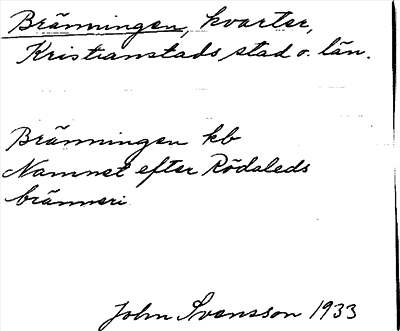 Bränningen, kvarter,
Kristianstads stad o. län.
Bränningen kb
Namnet efter Rödaleds
bränneri
John Svensson 1933